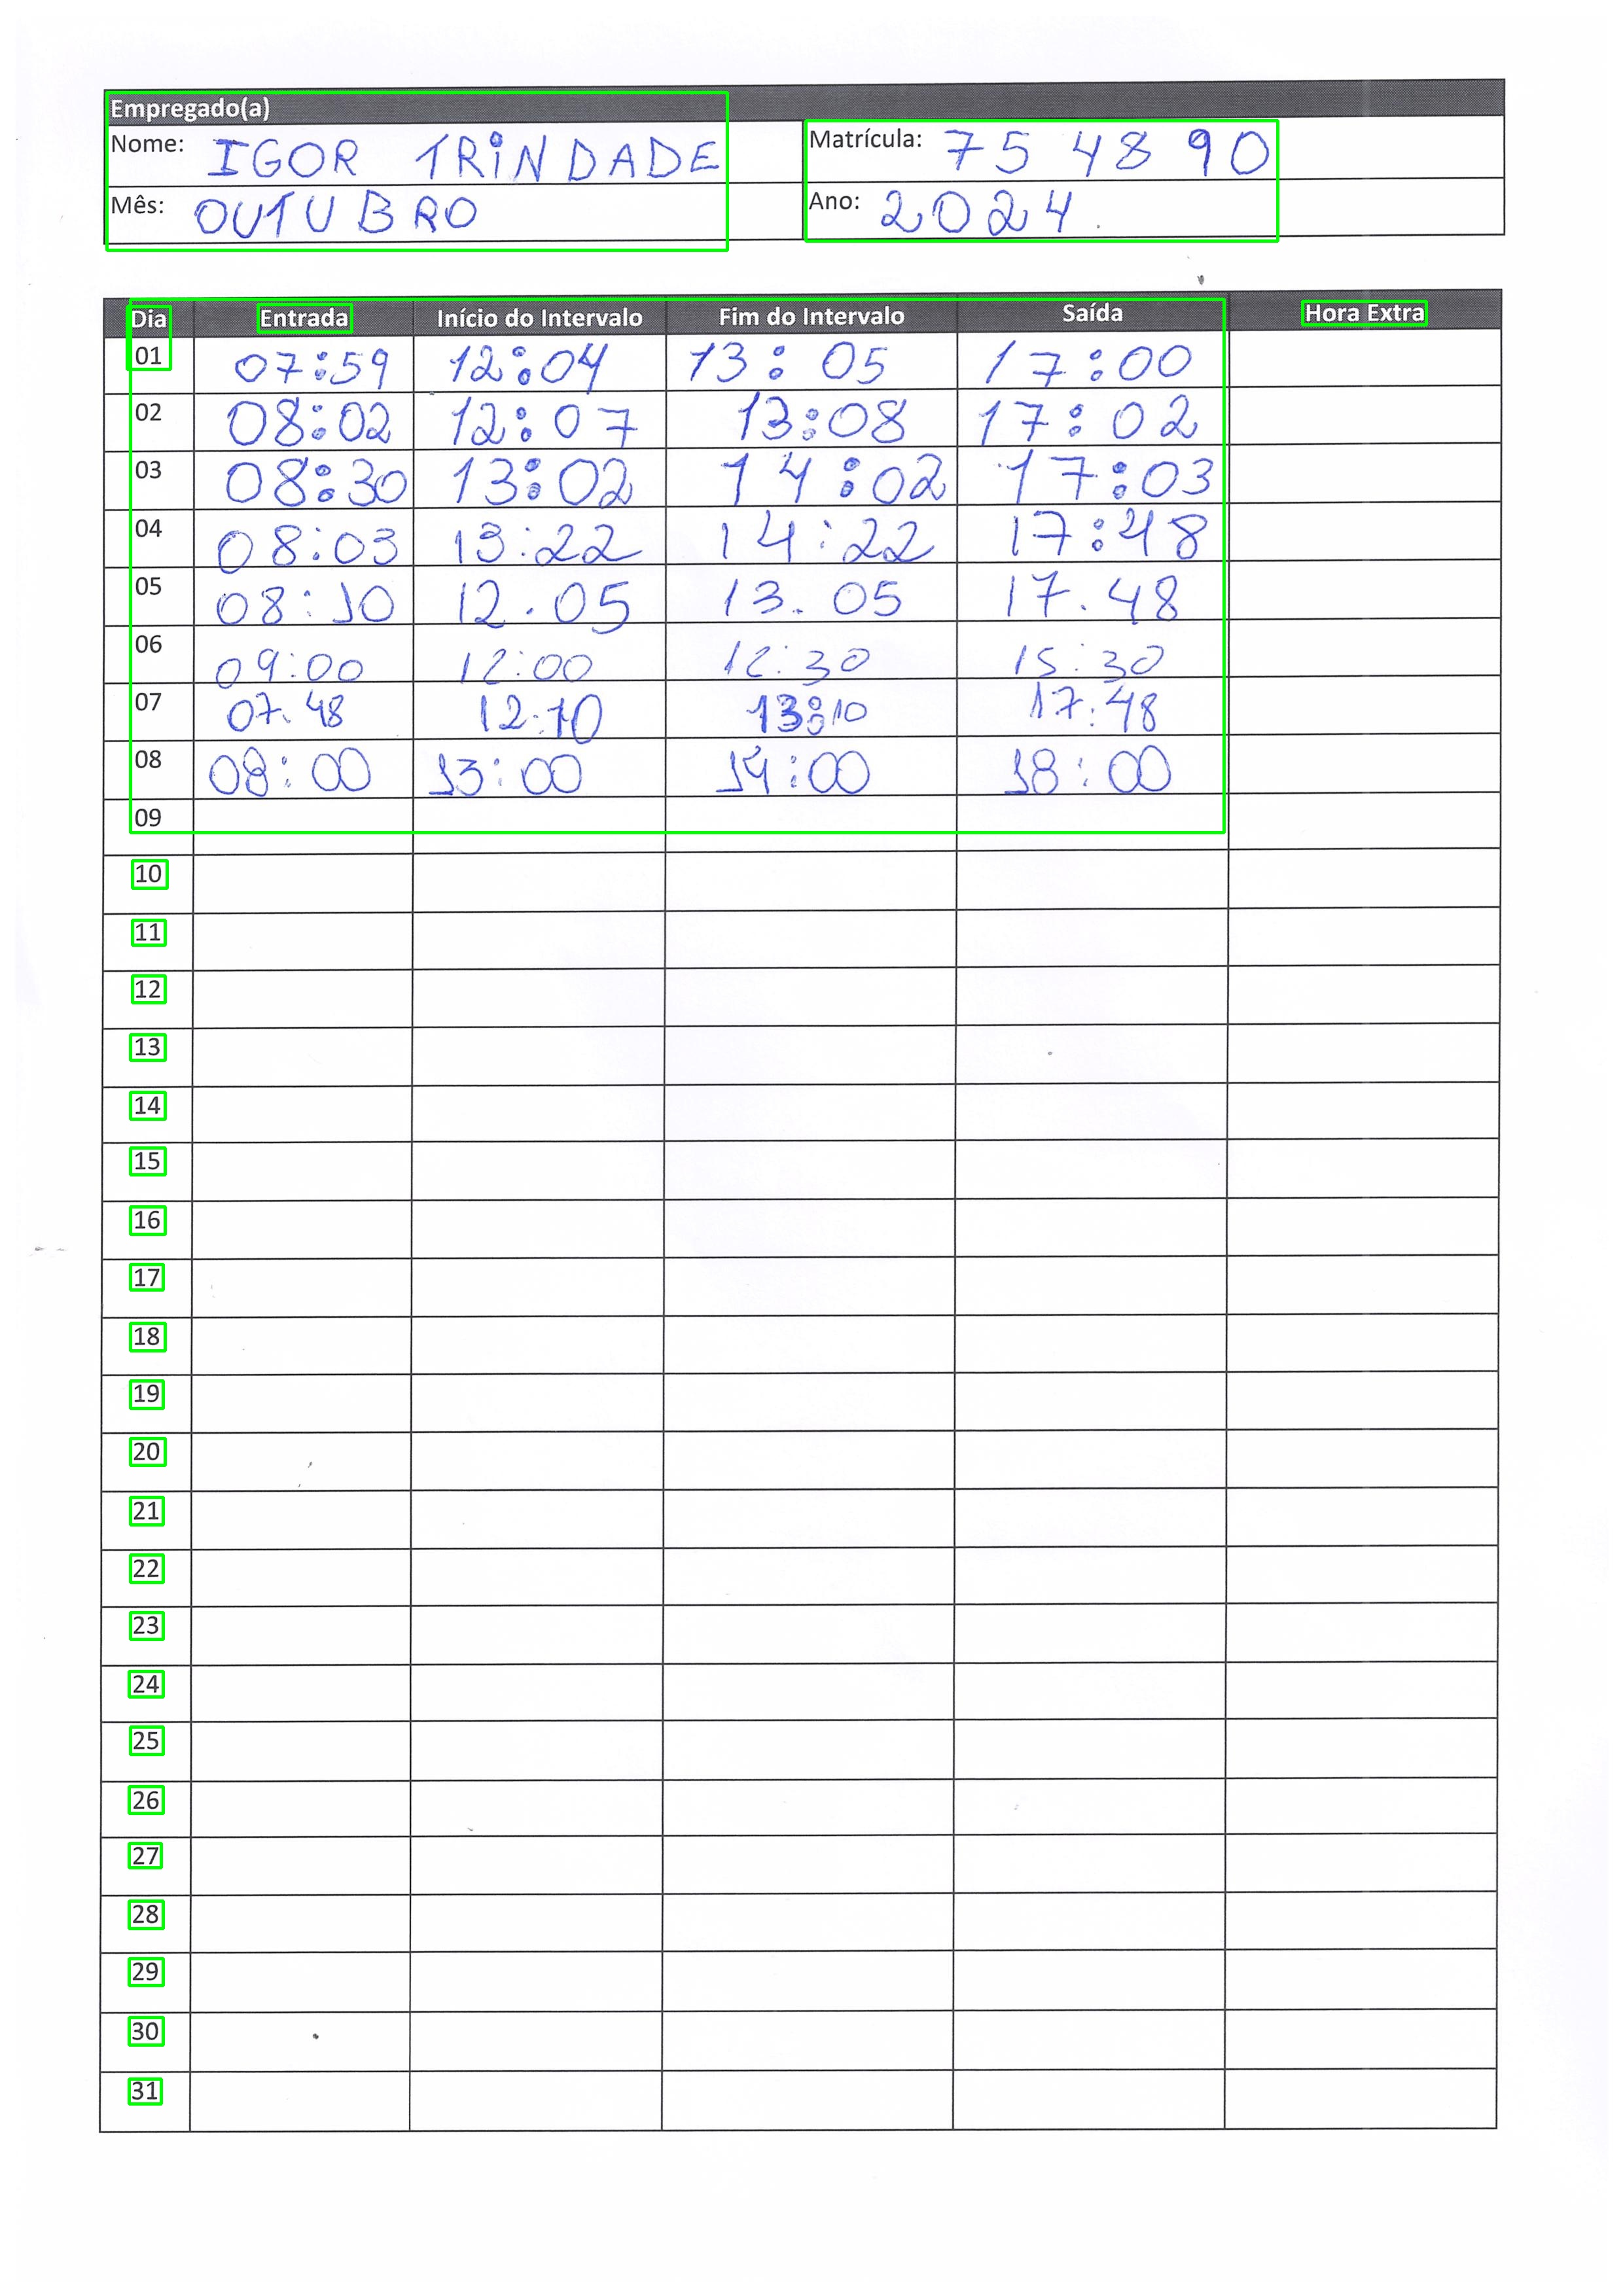 Empregado(a)
Nome: IGOR TRINDADE Matrícula: 754890
Mês: OUTUBRO Ano: 2024.
Dia Entrada Início do Intervalo Fim do Intervalo Saída Hora Extra
01 07:59 12:04 13:05 17:00
02 08:02 12:07 13:08 17:02
03 08:30 13:02 14:02 17:03
04 08:03 13:22 14:22 17:48
05 08:10 12.05 13.05 17.48
06 09:00 12:00 12:30 15:30
07 07.48 12:10 13:10 17:48
08 08:00 13:00 14:00 18:00
09
10
11
12
13
14
15
16
17
18
19
20
21
22
23
24
25
26
27
28
29
30
31